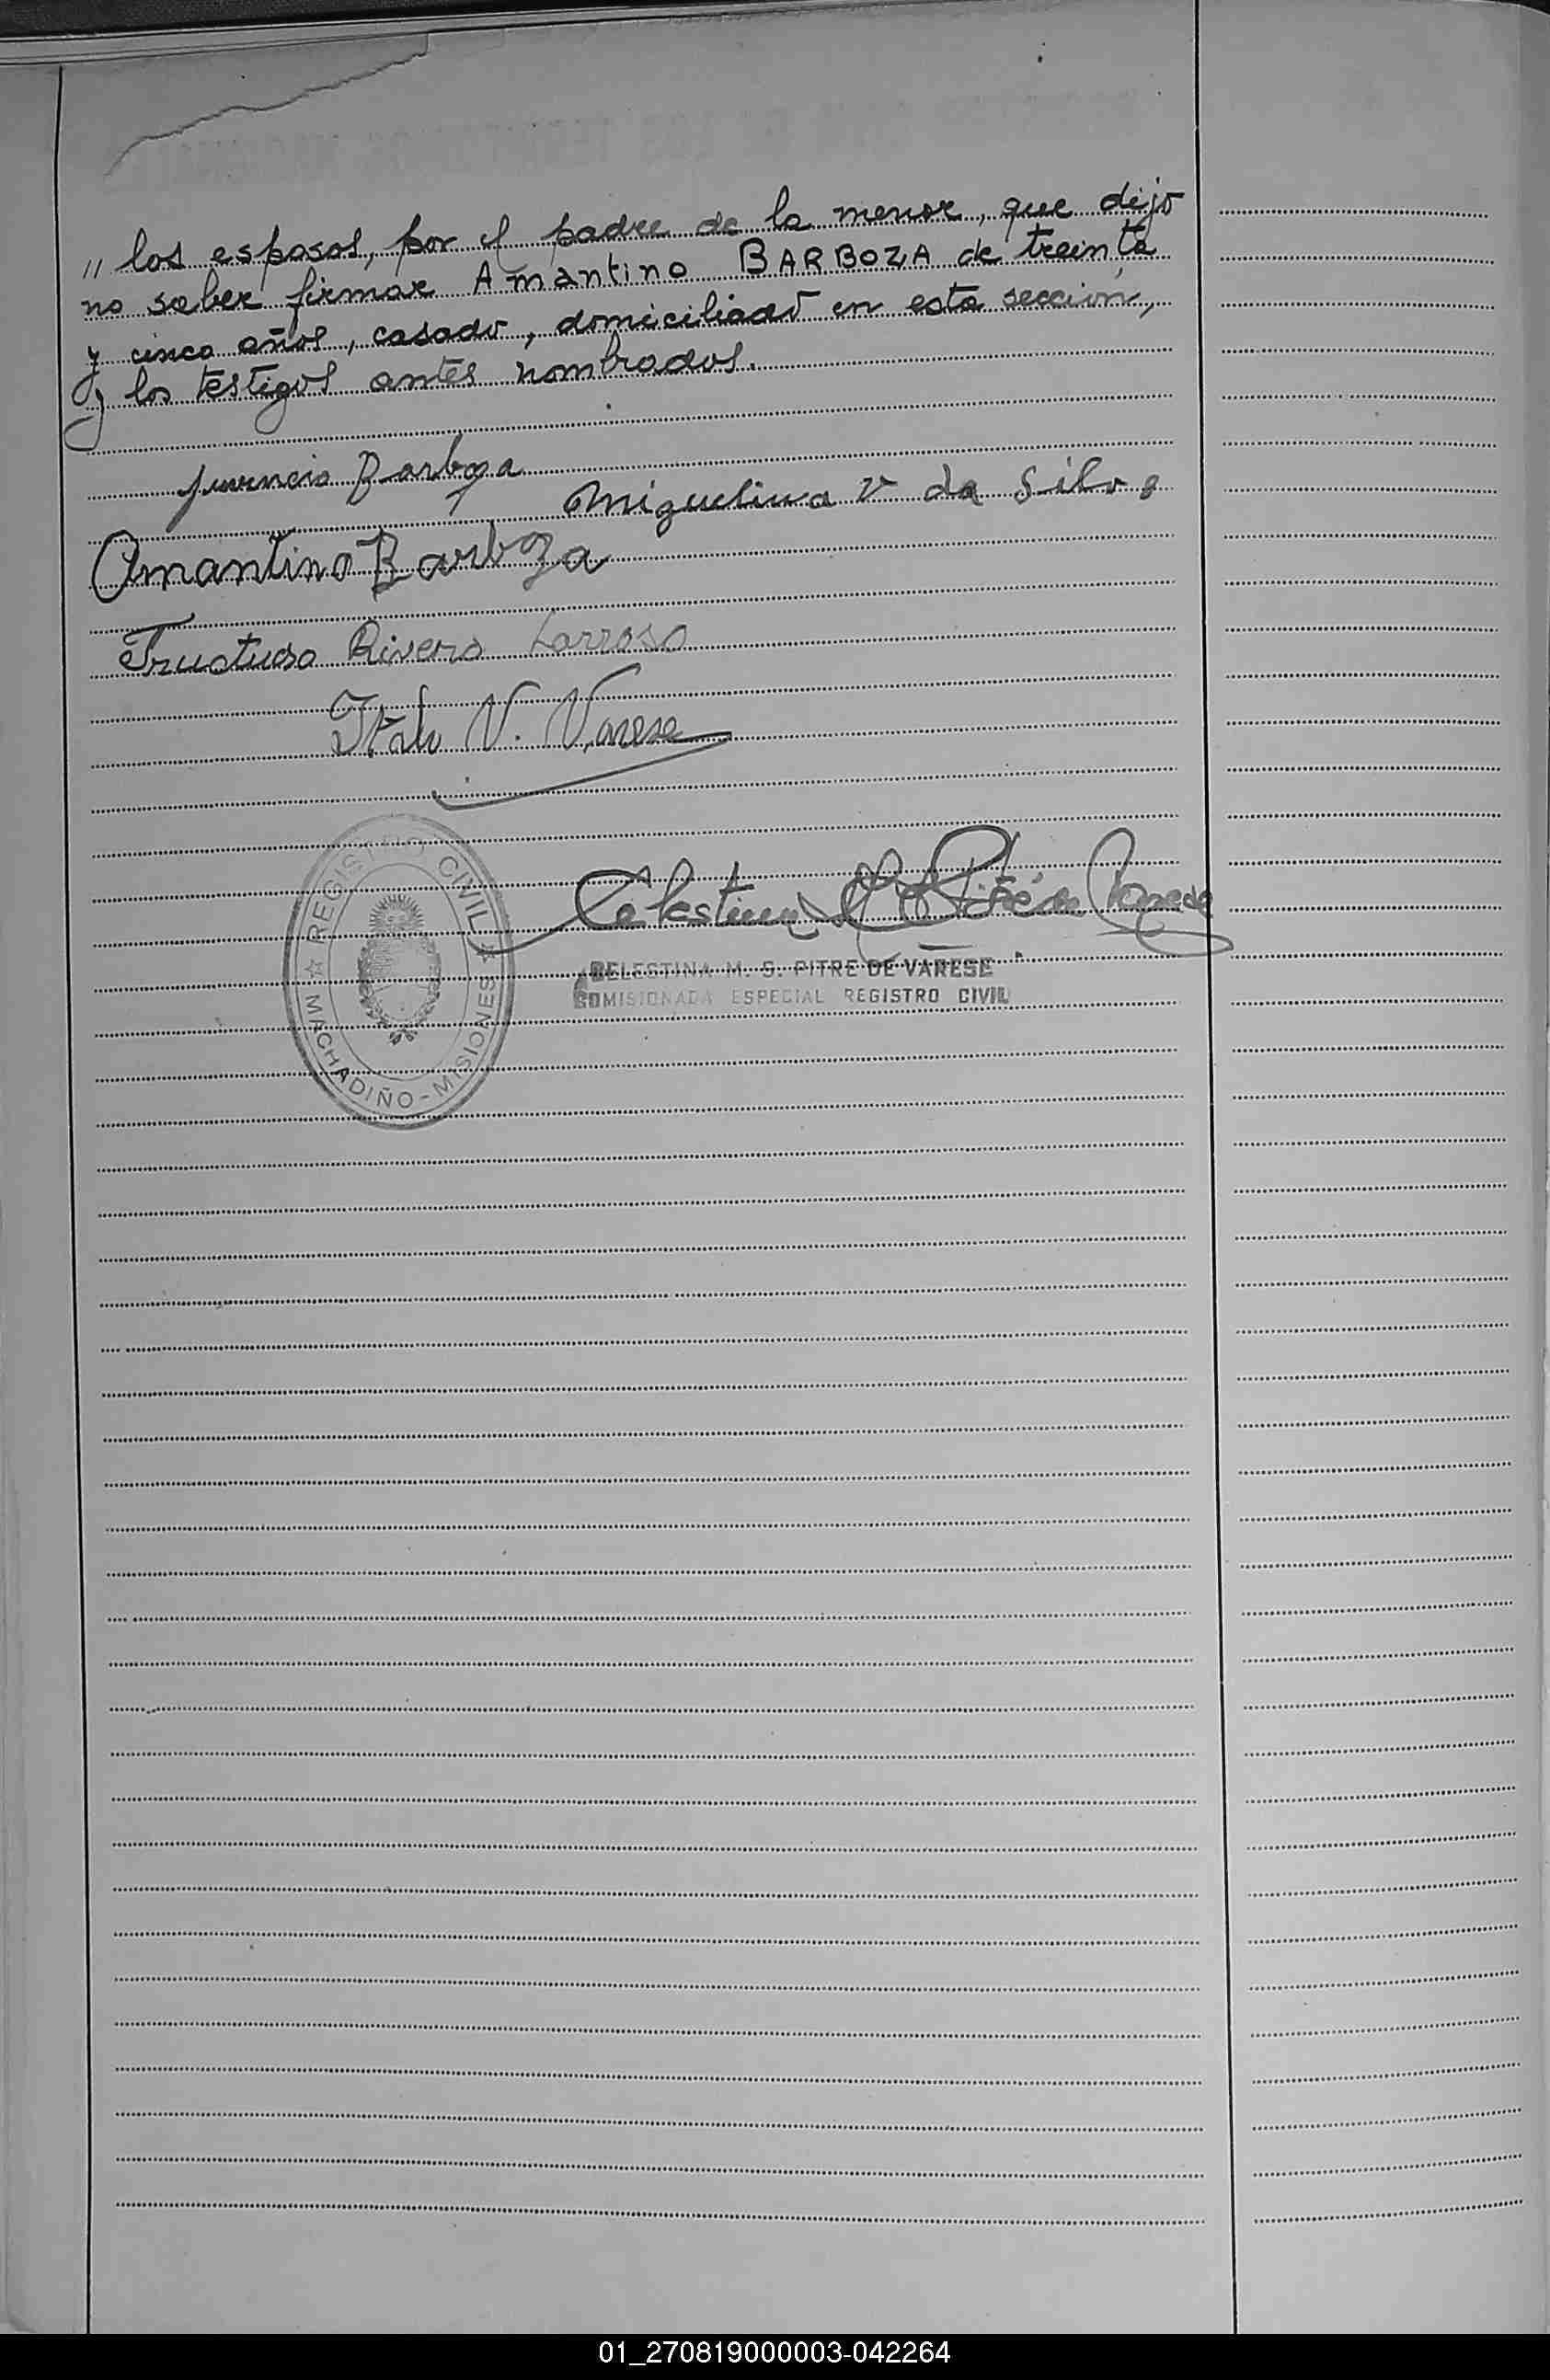 " los esposos, por el padre de la menor, que dijo
no saber firmar Amantino BARBOZA de treinta
y cinco años, casado, domiciliado en esta sección,
y los testigos antes nombrados.
Juvencio Barboza
Miguelina V da Silva
Amantino Barboza
Fructuoso Rivero Larroso
Italo V. Varese
Celestina M S Pitré de Varese
REGISTRO CIVIL
MACHADIÑO - MISIONES
CELESTINA M. S. PITRE DE VARESE
COMISIONADA ESPECIAL REGISTRO CIVIL
01_270819000003-042264